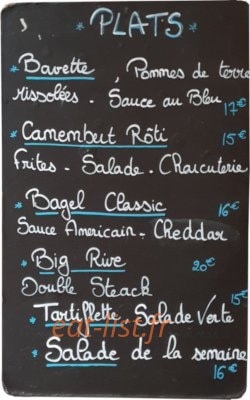 * PLATS *
* Bavette, Pommes de terre
rissolées - Sauce au Bleu
17€
* Camembert Rôti 15€
Frites - Salade - Charcuterie
* Bagel Classic 16€
Sauce Americain - Cheddar
* Big Rive 20€
Double Steack
15€
* Tartiflette, Salade Verte
eat-list.fr
* Salade de la semaine
16€